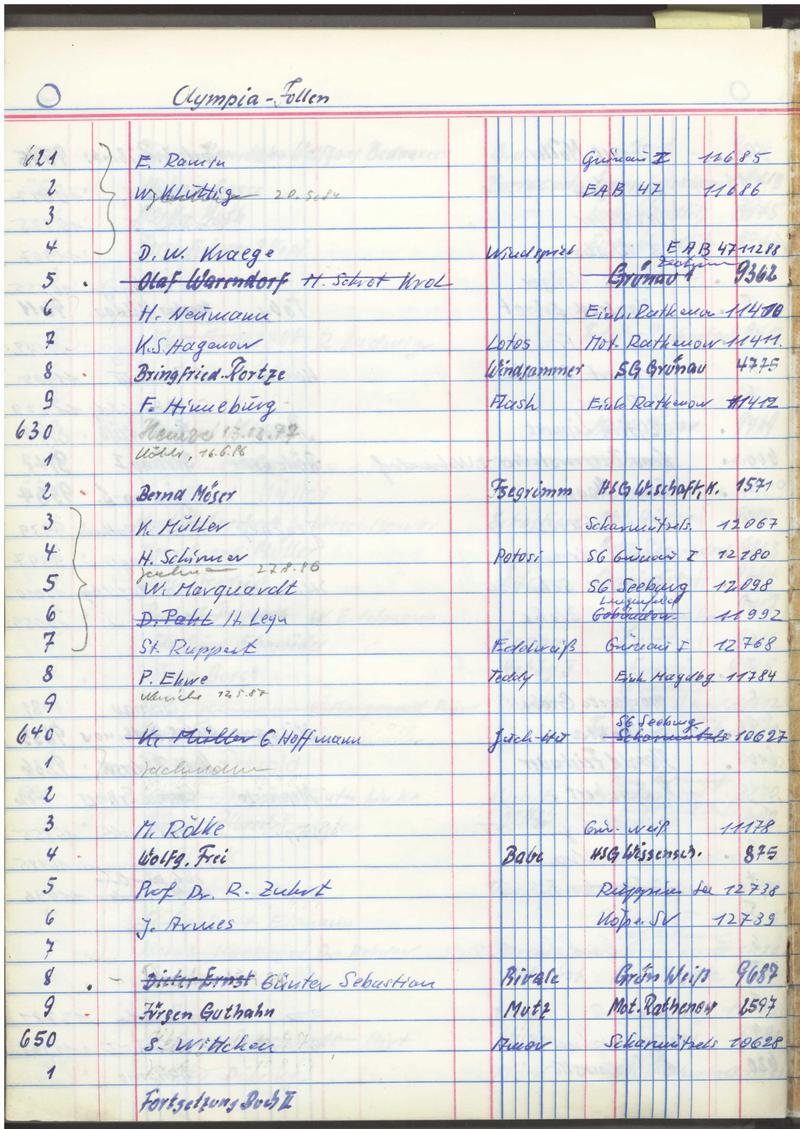 Olympia-Jollen
621 E. Ramin Grünau I 11685
2 W. Klüttig 20.5.84 EAB 47 11686
3
4 D. W. Kraege Windspiel EAB 47 11288
5 Olaf Warrndorf H. Schrot Krol Grünau 1 9362
6 H. Neumann Einh. Rathenow 11410
7 K.S. Hagenow Lotos Mot. Rathenow 11411
8 Bringfried Portze Windjammer SG Grünau 4775
9 F. Hinneburg Flash Einh. Rathenow 11412
630 13.12.77
1 16.6.86
2 Bernd Möser Isegrimm HSG W.schaft, K. 1571
3 K. Müller Scharmützels. 12067
4 H. Schirmer Potosi SG Grünau I 12180
27.8.86
5 W. Marquardt SG Seeburg 12098
6 D. Paht H. Legu 11992
7 St. Ruppert Edelweiß Grünau I 12768
8 P. Ehwe Teddy Einh. Magdbg 11784
12.5.87
9
SG Seeburg
640 K. Müller G. Hoffmann Scharmützels 10627
1 Jachmann
2
3 M. Rölke Grün-weiß 11178
4 Wolfg. Frei Babe HSG Wissensch. 875
5 Prof. Dr. R. Zuhrt Ruppiner See 12738
6 J. Armes Köpe. SV 12739
7
8 Dieter Ernst Günter Sebastian Rivale Grün Weiß 9687
9 Jürgen Guthahn Mutz Mot. Rathenow 2597
650 S. Wittchen Amor Scharmützels 10628
1
Fortsetzung Buch II